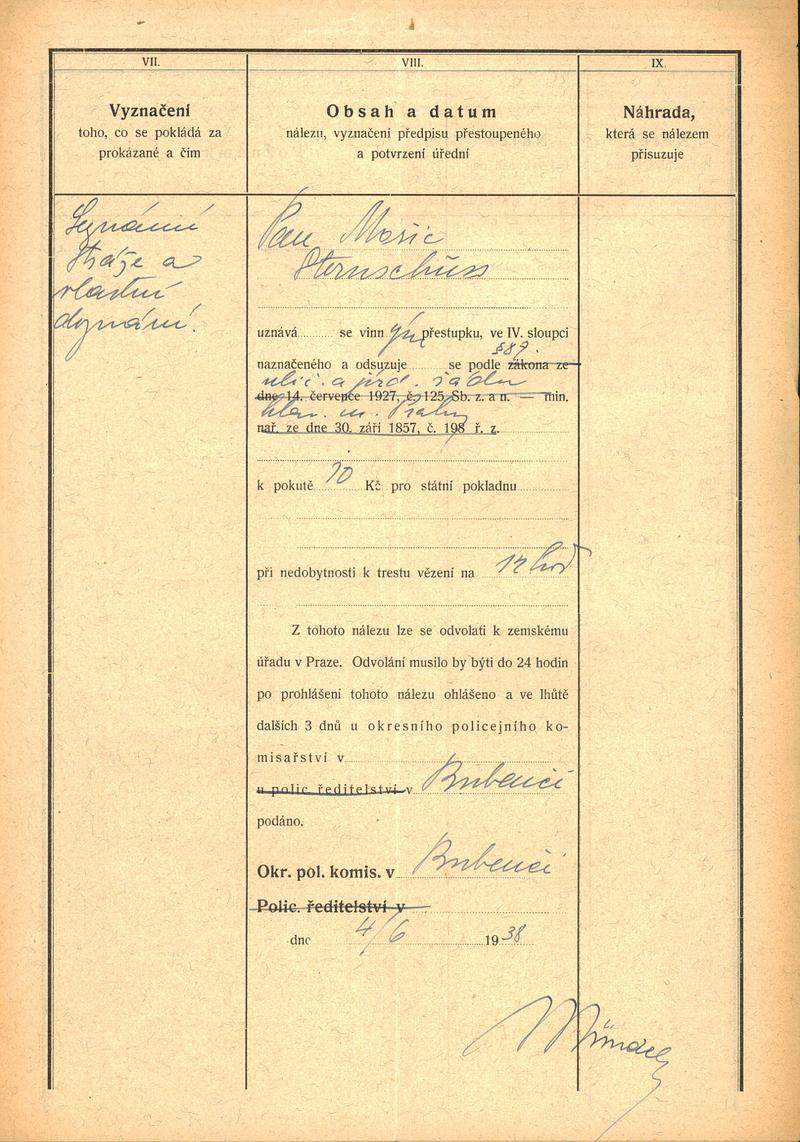 VII.
VIII.
IX.
Vyznačení
toho, co se pokládá za
prokázané a čím
Obsah a datum
nálezu, vyznačení předpisu přestoupeného
a potvrzení úřední
Náhrada,
která se nálezem
přisuzuje
Seznámí
stráže a
vlastní
doznání.
Pan Moric
Sternschuss
uznává se vinným přestupku, ve IV. sloupci
§ 89.
naznačeného a odsuzuje se podle zákona ze
ulič. a jízd. řádu
dne 14. července 1927, č. 125 Sb. z. a n. — min.
hlav. m. Prahy
nař. ze dne 30. září 1857, č. 198 ř. z.
k pokutě 10 Kč pro státní pokladnu
při nedobytnosti k trestu vězení na 12 hod
Z tohoto nálezu lze se odvolati k zemskému
úřadu v Praze. Odvolání musilo by býti do 24 hodin
po prohlášení tohoto nálezu ohlášeno a ve lhůtě
dalších 3 dnů u okresního policejního ko-
misařství v
u polic. ředitelství v Bubenči
podáno.
Okr. pol. komis. v Bubenči
Polic. ředitelství v
dne 4/6 1938